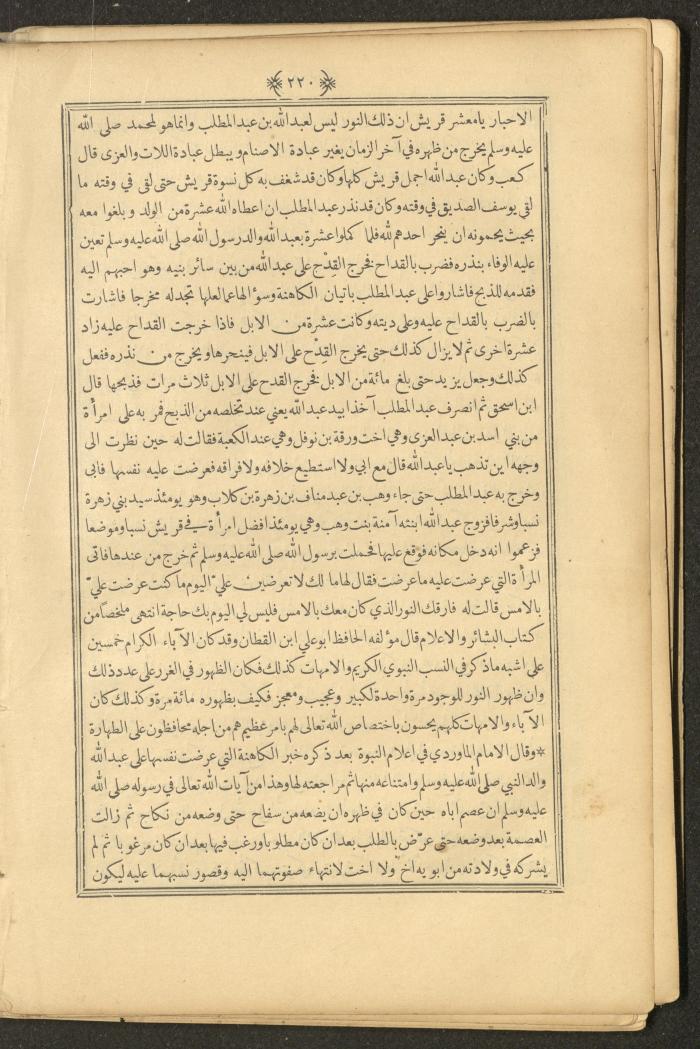 ﴿ ٢٢٠ ﴾
الاحبار يامعشر قريش ان ذلك النور ليس لعبدالله بن عبدالمطلب وانماهو لمحمد صلى الله
عليه وسلم يخرج من ظهره في آخر الزمان يغير عبادة الاصنام ويبطل عبادة اللات والعزى قال
كعب وكان عبدالله اجمل قريش كلها وكان قد شغف به كل نسوة قريش حتى لقى في وقته ما
لقي يوسف الصديق في وقته وكان قد نذر عبدالمطلب ان اعطاه الله عشرة من الولد وبلغوا معه
بحيث يحمونه ان ينحر احدهم لله فلما كملوا عشرة بعبدالله والد رسول الله صلى الله عليه وسلم تعين
عليه الوفاء بنذره فضرب بالقداح فخرج القِدْح على عبدالله من بين سائر بنيه وهو احبهم اليه
فقدمه للذبح فاشاروا على عبدالمطلب باتيان الكاهنة وسؤالها عما لعلها تجدله مخرجا فاشارت
بالضرب بالقداح عليه وعلى ديته وكانت عشرة من الابل فاذا خرجت القداح عليه زاد
عشرة اخرى ثم لا يزال كذلك حتى يخرج القِدْح على الابل فينحرها ويخرج من نذره ففعل
كذلك وجعل يزيد حتى بلغ مائة من الابل فخرج القدح على الابل ثلاث مرات فذبحها قال
ابن اسحق ثم انصرف عبدالمطلب آخذا بيد عبدالله يعني عند تخلصه من الذبح فمر به على امرأة
من بني اسد بن عبدالعزى وهي اخت ورقة بن نوفل وهي عند الكعبة فقالت له حين نظرت الى
وجهه اين تذهب ياعبدالله قال مع ابي ولا استطيع خلافه ولا فراقه فعرضت عليه نفسها فابى
وخرج به عبدالمطلب حتى جاء وهب بن عبدمناف بن زهرة بن كلاب وهو يومئذ سيد بني زهرة
نسبا وشرفا فزوج عبدالله ابنته آمنة بنت وهب وهي يومئذ افضل امرأة في قريش نسبا وموضعا
فزعموا انه دخل مكانه فوقع عليها فحملت برسول الله صلى الله عليه وسلم ثم خرج من عندها فاتى
المرأة التي عرضت عليه ما عرضت فقال لها ما لك لا تعرضين عليّ اليوم ما كنت عرضت عليّ
بالامس قالت له فارقك النور الذي كان معك بالامس فليس لي اليوم بك حاجة انتهى ملخصاً من
كتاب البشائر والاعلام قال مؤلفه الحافظ ابو علي ابن القطان وقد كان الآباء الكرام خمسين
على اشبه ما ذكر في النسب النبوي الكريم والامهات كذلك فكان الظهور في الغرر على عدد ذلك
وان ظهور النور للوجود مرة واحدة لكبير وعجيب ومعجز فكيف بظهوره مائة مرة وكذلك كان
الآباء والامهات كلهم يحسون باختصاص الله تعالى لهم بامر عظيم هم من اجله محافظون على الطهارة
*وقال الامام الماوردي في اعلام النبوة بعد ذكره خبر الكاهنة التي عرضت نفسها على عبدالله
والد النبي صلى الله عليه وسلم وامتناعه منها ثم مراجعته لها وهذا من آيات الله تعالى في رسوله صلى الله
عليه وسلم ان عصم اباه حين كان في ظهره ان يضعه من سفاح حتى وضعه من نكاح ثم زالت
العصمة بعد وضعه حتى عرّض بالطلب بعد ان كان مطلوبا ورغب فيها بعد ان كان مرغوبا ثم لم
يشركه في ولادته من ابويه اخ ولا اخت لانتهاء صفوتهما اليه وقصور نسبهما عليه ليكون